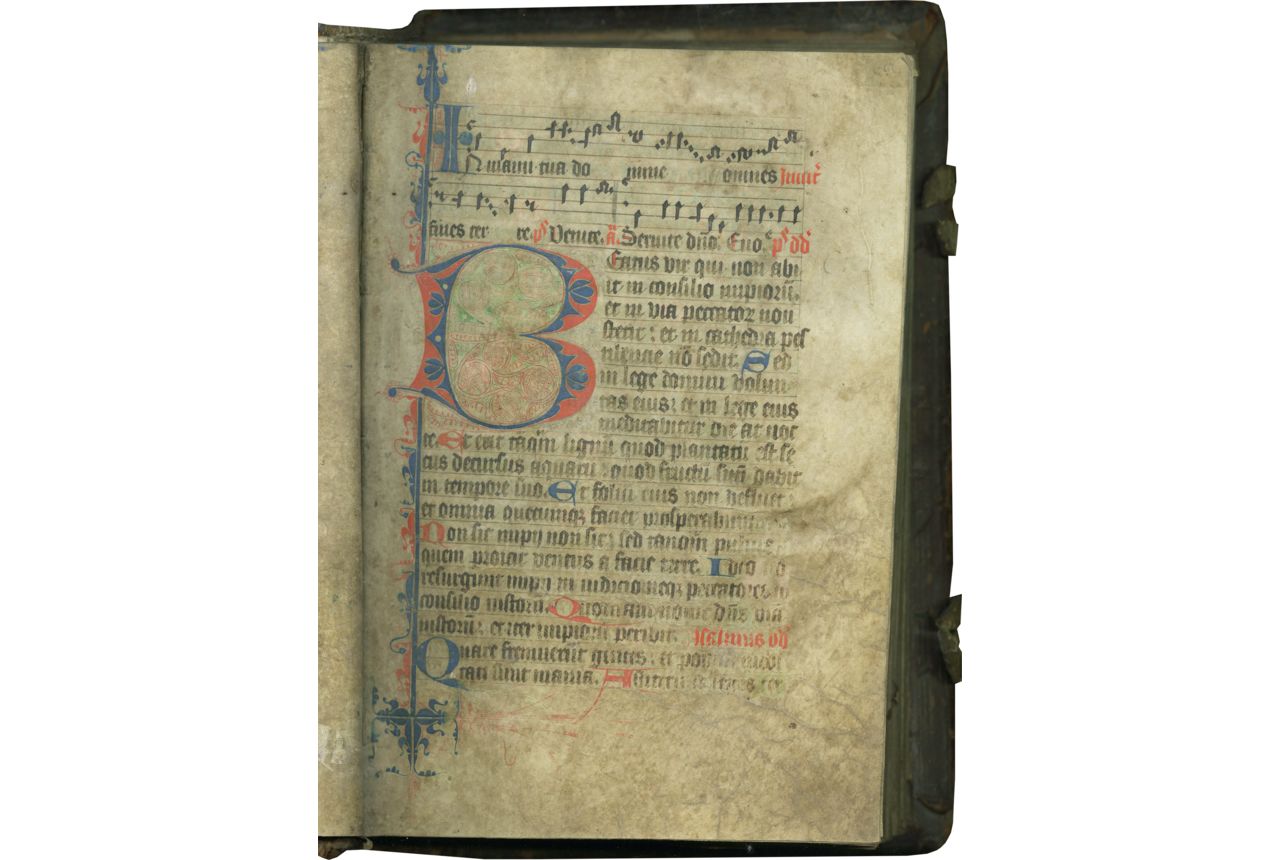 IN manu tua do mine omnes
fines ter re. ps̄ Venite. a̅ Seruite dn̄o. Euo.
BEatus vir qui non abi
it in consilio impiorū,
et in via peccator̄ non
stetit: et in cathedra pes
tilencie nō sedit. Sed
in lege domini volun
tas eius: et in lege eius
meditabitur die ac noc
te. Et erit tāqm̄ lignū quod plantatū est se
cus decursus aquarū: quod fructū suū dabit
in tempore suo. Et foliū eius non defluet:
et omnia quecumqꝫ faciet prosperabuntur
Non sic impij non sic: sed tanqm̄ puluis
quem proicit ventus a facie terre. Ideo
resurgunt impij in iudicio neqꝫ peccatores in
consilio iustorū. Quoniam nouit dn̄s viā
iustorū: et iter impiorū peribit. Psalmus dd
Quare fremuerūt gentes: et populi medi
tati sunt inania. Astiterūt reges ter